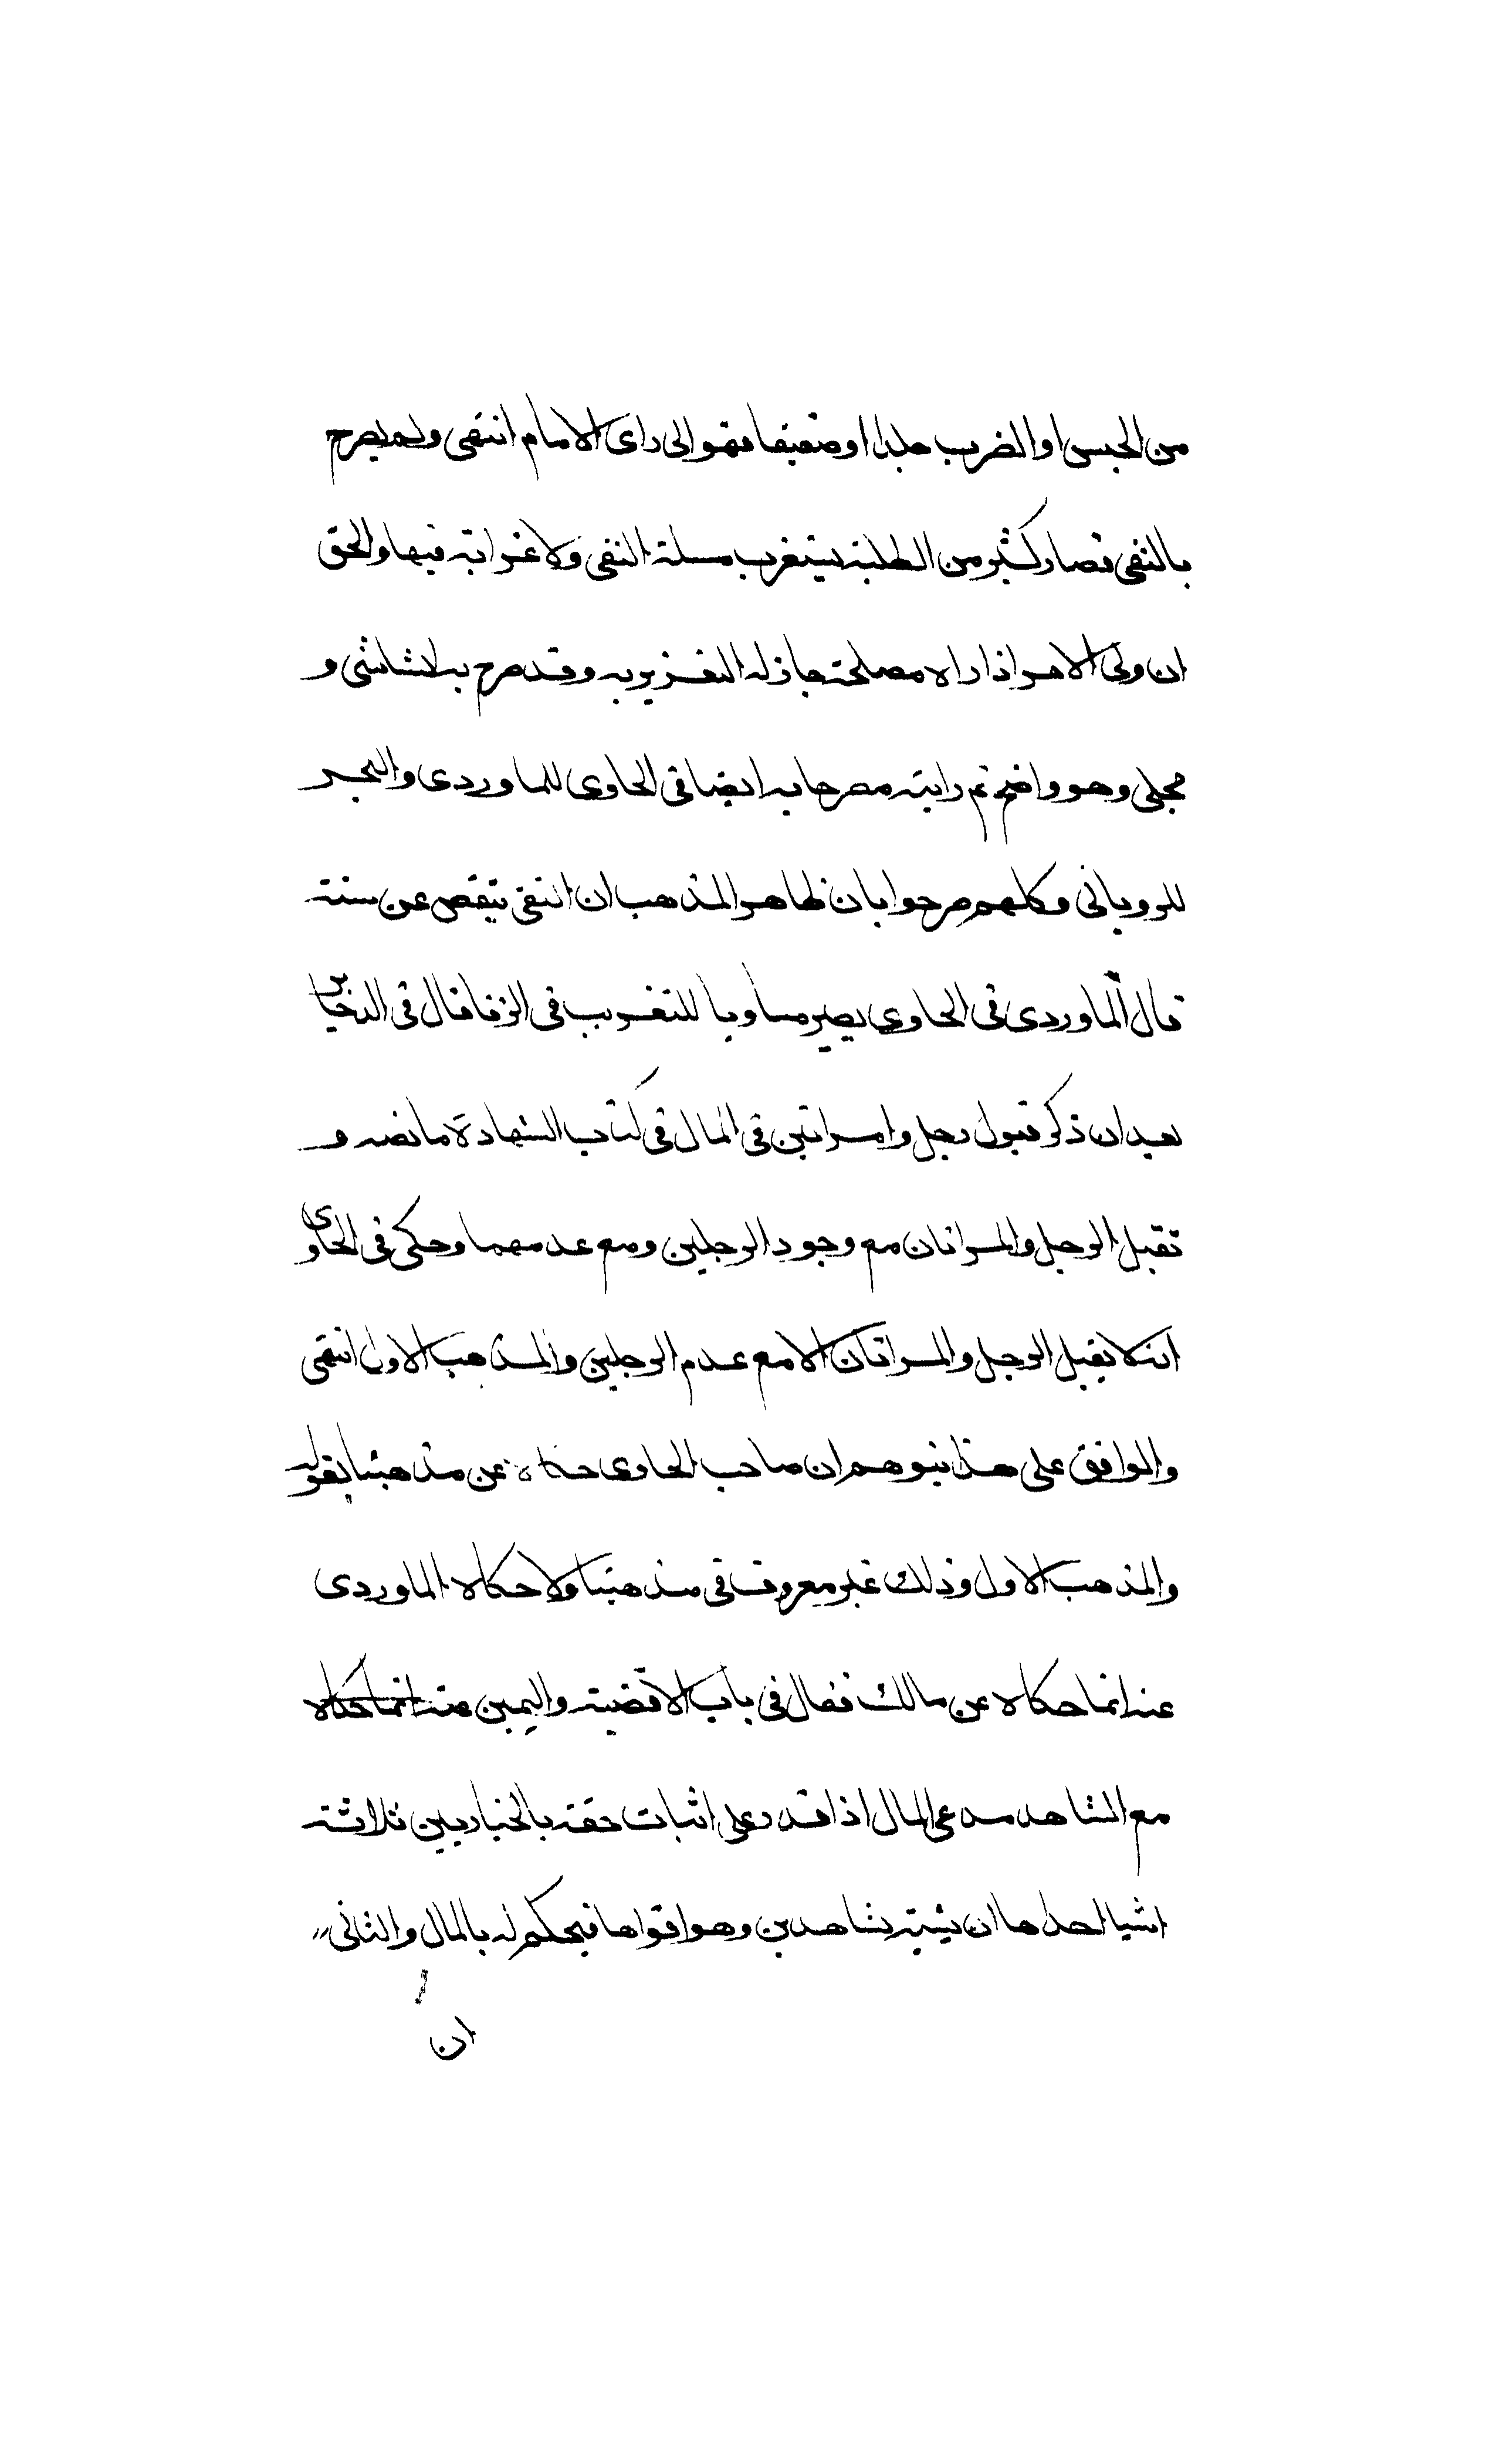 من الحبس او الضرب جليلا او ضعيفا فهو الى راى الامام انتهى ولم يصرح
بالنفى فصار كثير من الطلبة يستغرب مسلة النفى ولا غرابة فيها والحق
ان ولى الامر اذا راه مصلحة جاز له التعزير به وقد صرح به الشاشى و
مجلى وهو واضح ثم رايته مصرحا به ايضا فى الحاوى للماوردى والبحر
للرويانى وكلهم صرحوا بان ظاهر المذهب ان النفى ينقص عن سنة
قال الماوردى فى الحاوى يصير مساويا للتغريب فى الزنا قال فى الذخاير
بعد ان ذكر قبول رجل وامراتين فى المال فى كتاب الشهادة ما نصه و
تقبل الرجل والمراتان مع وجود الرجلين ومع عدمهما وحكى فى الحاوى
انه لا يقبل الرجل والمراتان الا مع عدم الرجلين والمذهب الاول انتهى
والواقف على هذا يتوهم ان صاحب الحاوى حكاه عن مذهبنا بقوله
والمذهب الاول وذلك غير معروف فى مذهبنا ولا حكاه الماوردى
عنه انما حكاه عن مالك فقال فى باب الاقضية واليمين عنه انما حكاه
مع الشاهد مدعى المال اذا قدر على اثبات حقه بالخيار بين ثلاثة
اشيا احداها ان يثبته بشاهدين وهو اقواها فيحكم له بالمال والثانى
ان